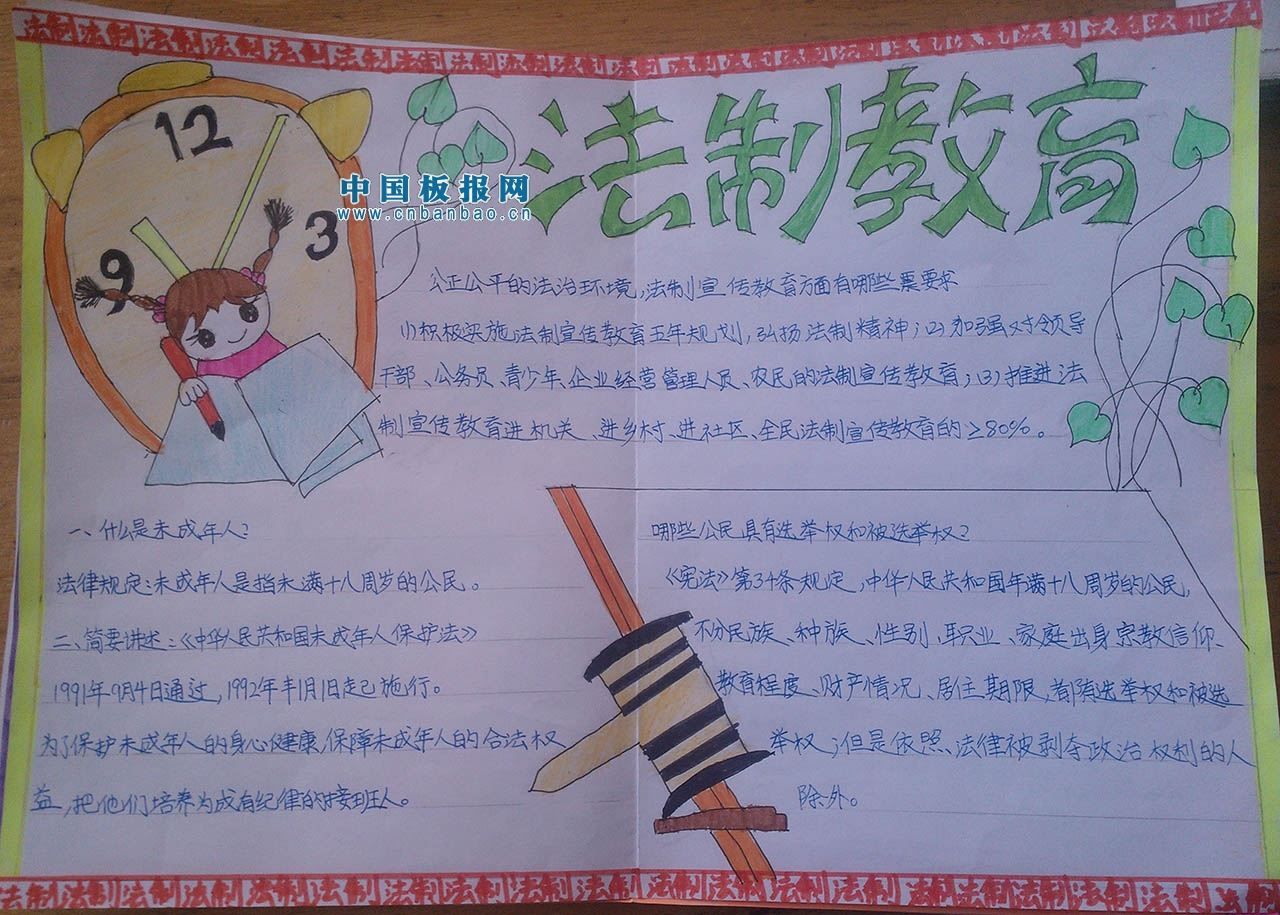 法制法制法制法制法制法制法制法制法制法制法制法制法制法制法制法制法制法制法制法制
法制教育
12
3
9
中国板报网
www.cnbanbao.cn
公正公平的法治环境,法制宣传教育方面有哪些票要求
(1)积极实施法制宣传教育五年规划,弘扬法制精神;(2)加强对领导
干部、公务员、青少年、企业经营管理人员、农民的法制宣传教育;(3)推进法
制宣传教育进机关、进乡村、进社区、全民法制宣传教育的≥80%。
一、什么是未成年人?
法律规定:未成年人是指未满十八周岁的公民。
二、简要讲述:《中华人民共和国未成年人保护法》
1991年9月4日通过,1992年1月1日起施行。
为了保护未成年人的身心健康,保障未成年人的合法权
益,把他们培养为成有纪律的接班人。
哪些公民具有选举权和被选举权?
《宪法》第34条规定,中华人民共和国年满十八周岁的公民,
不分民族、种族、性别、职业、家庭出身宗教信仰、
教育程度、财产情况、居住期限,都有选举权和被选
举权;但是依照、法律被剥夺政治权利的人
除外。
法制法制法制法制法制法制法制法制法制法制法制法制法制法制法制法制法制法制法制法制